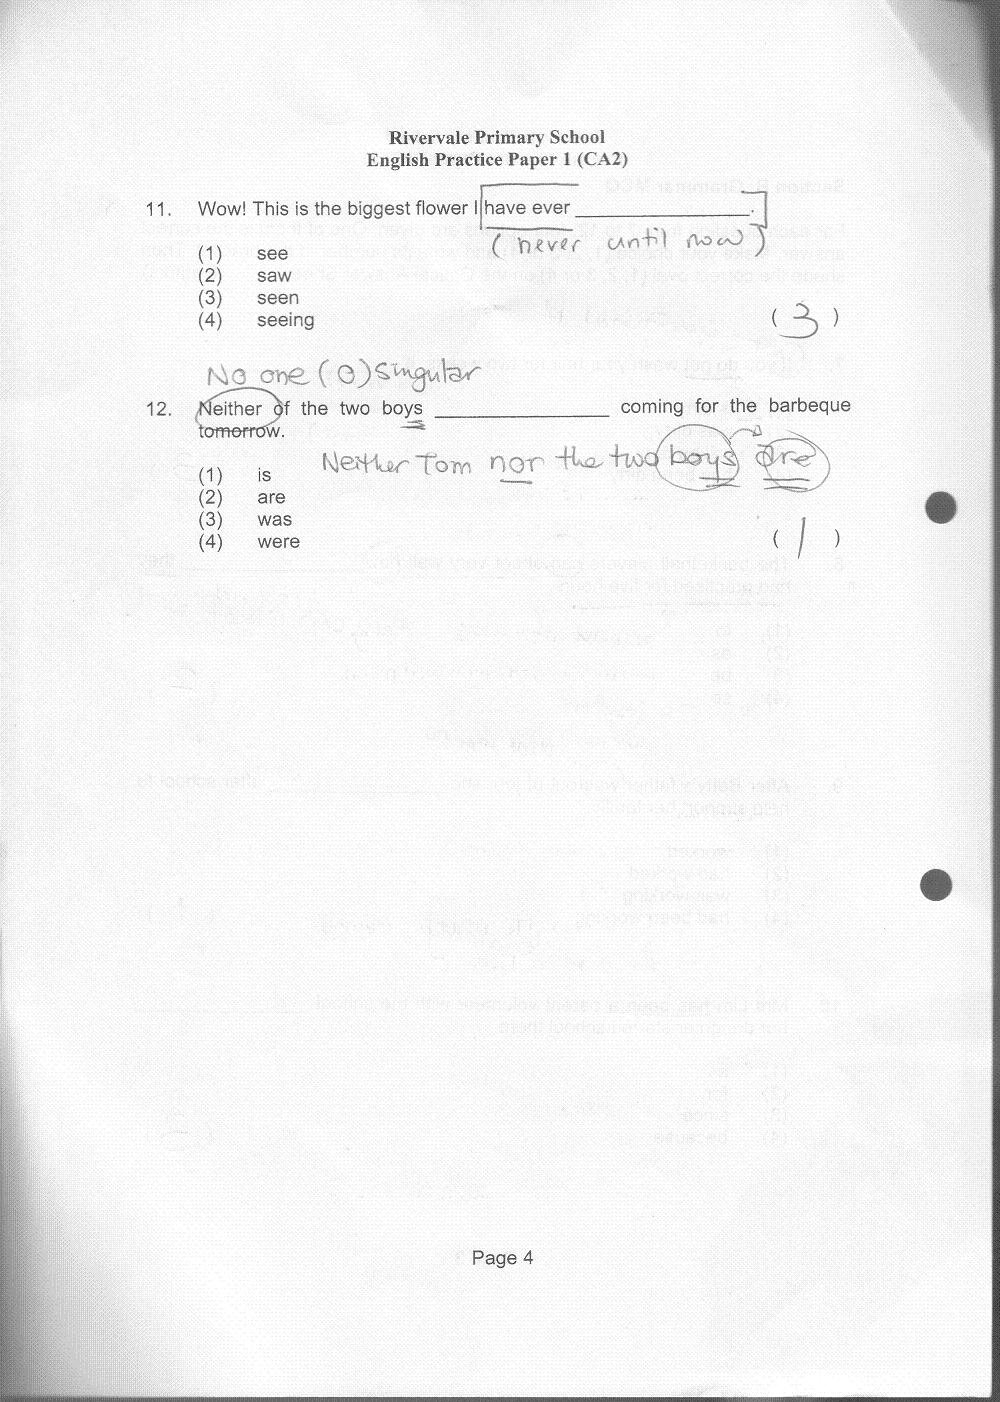 Rivervale Primary School
English Practice Paper 1 (CA2)
11. Wow! This is the biggest flower I have ever ____________.
( never until now )
(1) see
(2) saw
(3) seen
(4) seeing
( 3 )
No one (0) singular
12. Neither of the two boys ____________ coming for the barbeque
tomorrow.
Neither Tom nor the two boys are
(1) is
(2) are
(3) was
(4) were
( 1 )
Page 4